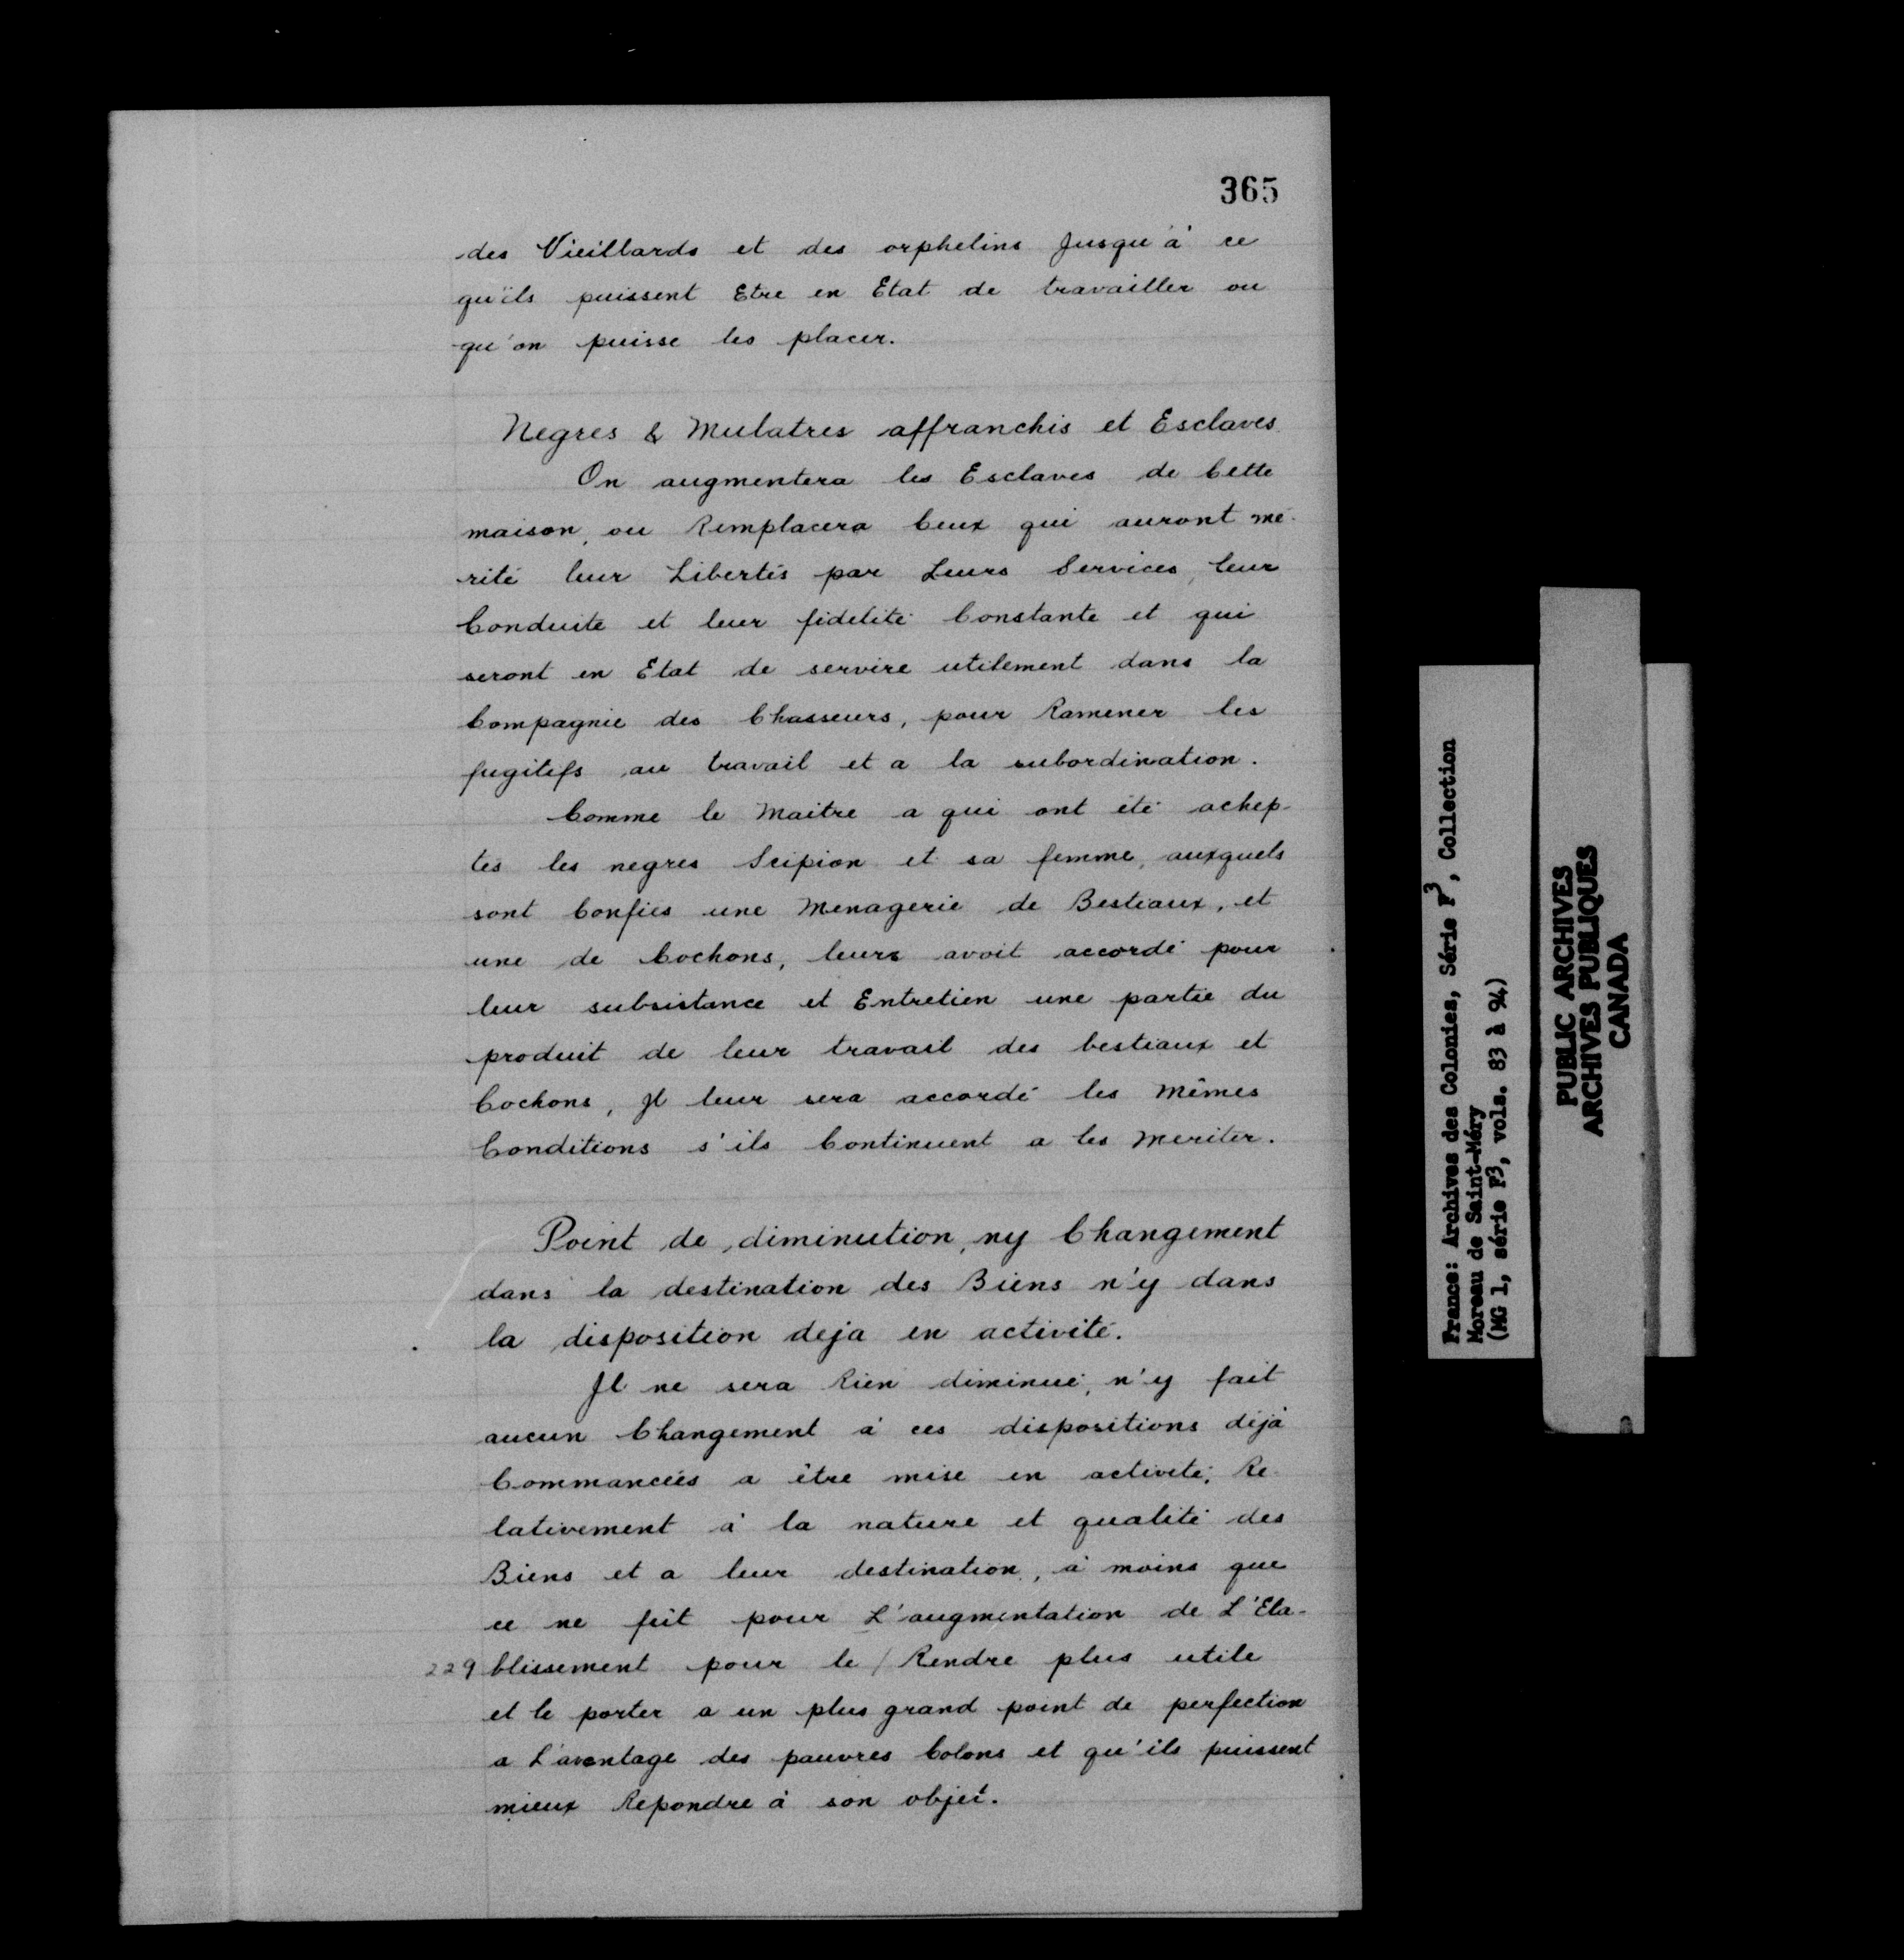 365
des Vieillards et des orphelins Jusqu'à ce
qu'ils puissent Etre en Etat de travailler ou
qu'on puisse les placer.
Negres & Mulatres affranchis et Esclaves.
On augmentera les Esclaves de Cette
maison, ou Remplacera Ceux qui auront mé-
rité leur Libertés par Leurs Services, leur
Conduite et leur fidélité Constante et qui
seront en Etat de servire utilement dans la
Compagnie des Chasseurs, pour Ramener les
fugitifs au travail et a la subordination.
Comme le Maitre a qui ont été achep-
tés les negres Scipion et sa femme, auxquels
sont Confiés une Menagerie de Bestiaux, et
une de Cochons, leurs avoit accordé pour
leur subsistance et Entretien une partie du
produit de leur travail des bestiaux et
Cochons, Jl leur sera accordé les Mêmes
Conditions s'ils Continuent a les Meriter.
Point de diminution, ny Changement
dans la destination des Biens n'y dans
la disposition deja en activité.
Jl ne sera Rien diminué, n'y fait
aucun Changement à ces dispositions déjà
Commancées a être mise en activité, Re-
lativement à la nature et qualité des
Biens et a leur destination, à moins que
ce ne fut pour L'augmentation de L'Eta-
229 blissement pour le / Rendre plus utile
et le porter a un plus grand point de perfection
a L'avantage des pauvres Colons et qu'ils puissent
mieux Repondre à son objet.
France: Archives des Colonies, Série F3, Collection
Moreau de Saint-Méry
(MG 1, série F3, vols. 83 à 94)
PUBLIC ARCHIVES
ARCHIVES PUBLIQUES
CANADA